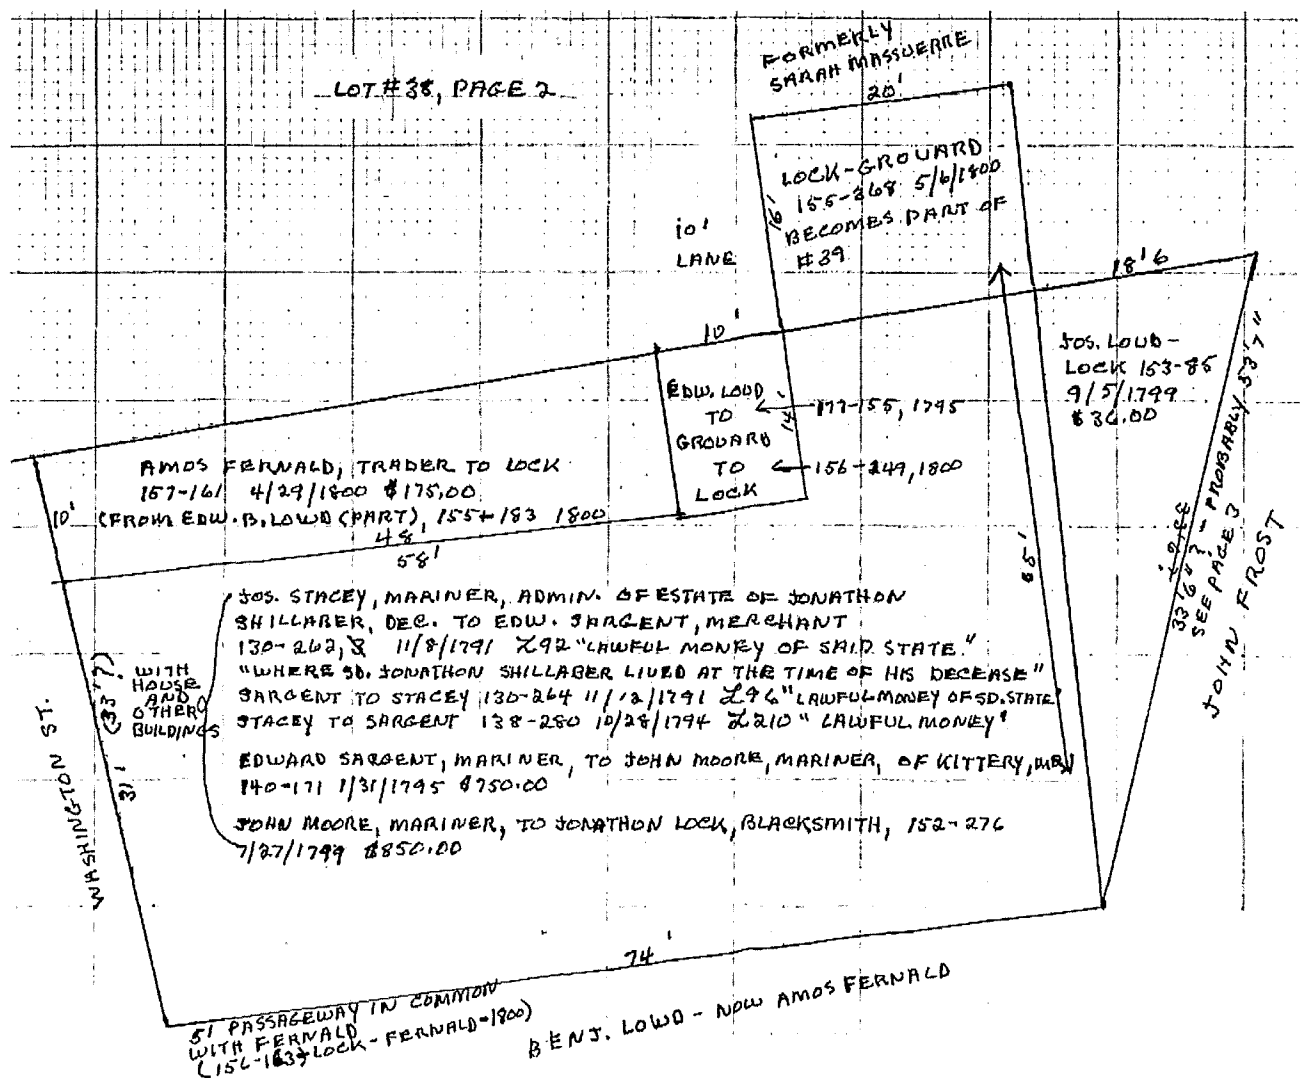 LOT #38, PAGE 2
FORMERLY
SARAH MASSUERRE
20'
LOCK-GROUARD
155-268 5/6/1800
BECOMES PART OF
#39
16'
10'
LANE
10'
18'6
JOS. LOUD-
LOCK 153-85
9/5/1799
$36.00
EDW. LOUD
TO
GROUARD
TO
LOCK
14'
177-155, 1795
156-249, 1800
AMOS FERNALD, TRADER TO LOCK
157-161 4/29/1800 $175.00
(FROM EDW. B. LOWD (PART), 155-183 1800
10'
48'
58'
65'
33'6"? - PROBABLY 53'7"
SEE PAGE 3
JOHN FROST
JOS. STACEY, MARINER, ADMIN. OF ESTATE OF JONATHON
SHILLABER, DEC. TO EDW. SARGENT, MERCHANT
130-262,3 11/8/1791 £92 "LAWFUL MONEY OF SAID STATE."
"WHERE SD. JONATHON SHILLABER LIVED AT THE TIME OF HIS DECEASE"
SARGENT TO STACEY 130-264 11/12/1791 £96 "LAWFUL MONEY OF SD. STATE
STACEY TO SARGENT 138-280 10/28/1794 £210 "LAWFUL MONEY"
EDWARD SARGENT, MARINER, TO JOHN MOORE, MARINER, OF KITTERY, ME)
140-171 1/31/1795 $750.00
JOHN MOORE, MARINER, TO JONATHON LOCK, BLACKSMITH, 152-276
7/27/1799 $850.00
WITH
HOUSE
AND
OTHER
BUILDINGS
31' (33'?)
WASHINGTON ST.
74'
5' PASSAGEWAY IN COMMON
WITH FERNALD
(156-163 LOCK-FERNALD-1800)
BENJ. LOWD - NOW AMOS FERNALD